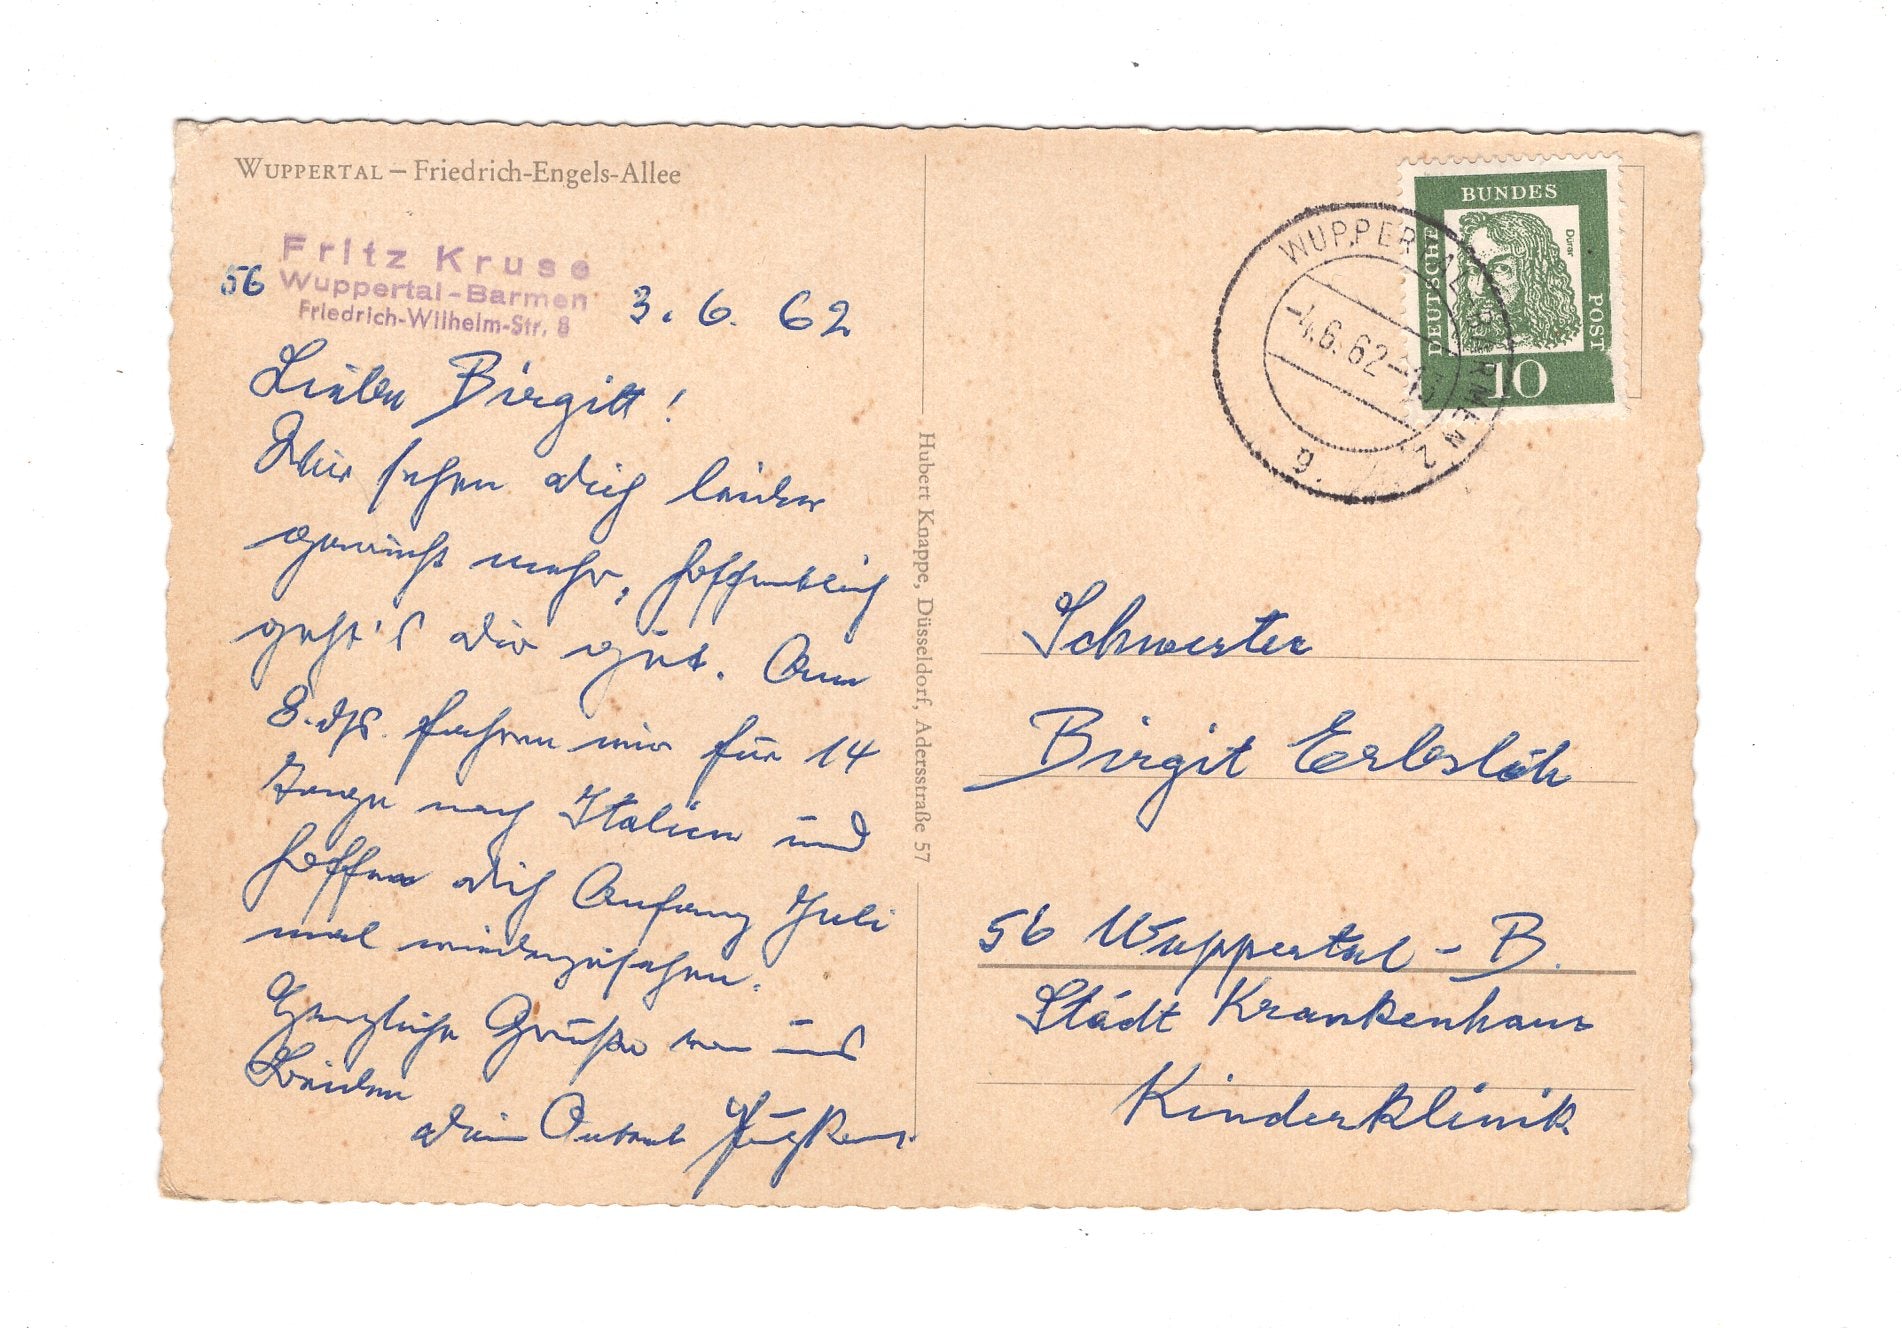 WUPPERTAL – Friedrich-Engels-Allee
Fritz Kruse
56 Wuppertal-Barmen
Friedrich-Wilhelm-Str. 8
3. 6. 62
Liebe Birgitt!
Wir sehen dich leider
gar nicht mehr, hoffentlich
geht's dir gut. Am
8. ds. fahren wir für 14
Tage nach Italien und
hoffen dich Anfang Juli
mal wiederzusehen.
Herzliche Grüße von uns
Beiden
dein
Hubert Knappe, Düsseldorf, Adersstraße 57
WUPPERTAL-BARMEN 2
-4.6.62-
g
DEUTSCHE
BUNDES
POST
Dürer
10
Schwester
Birgit Erbslöh
56 Wuppertal - B.
Städt Krankenhaus
Kinderklinik